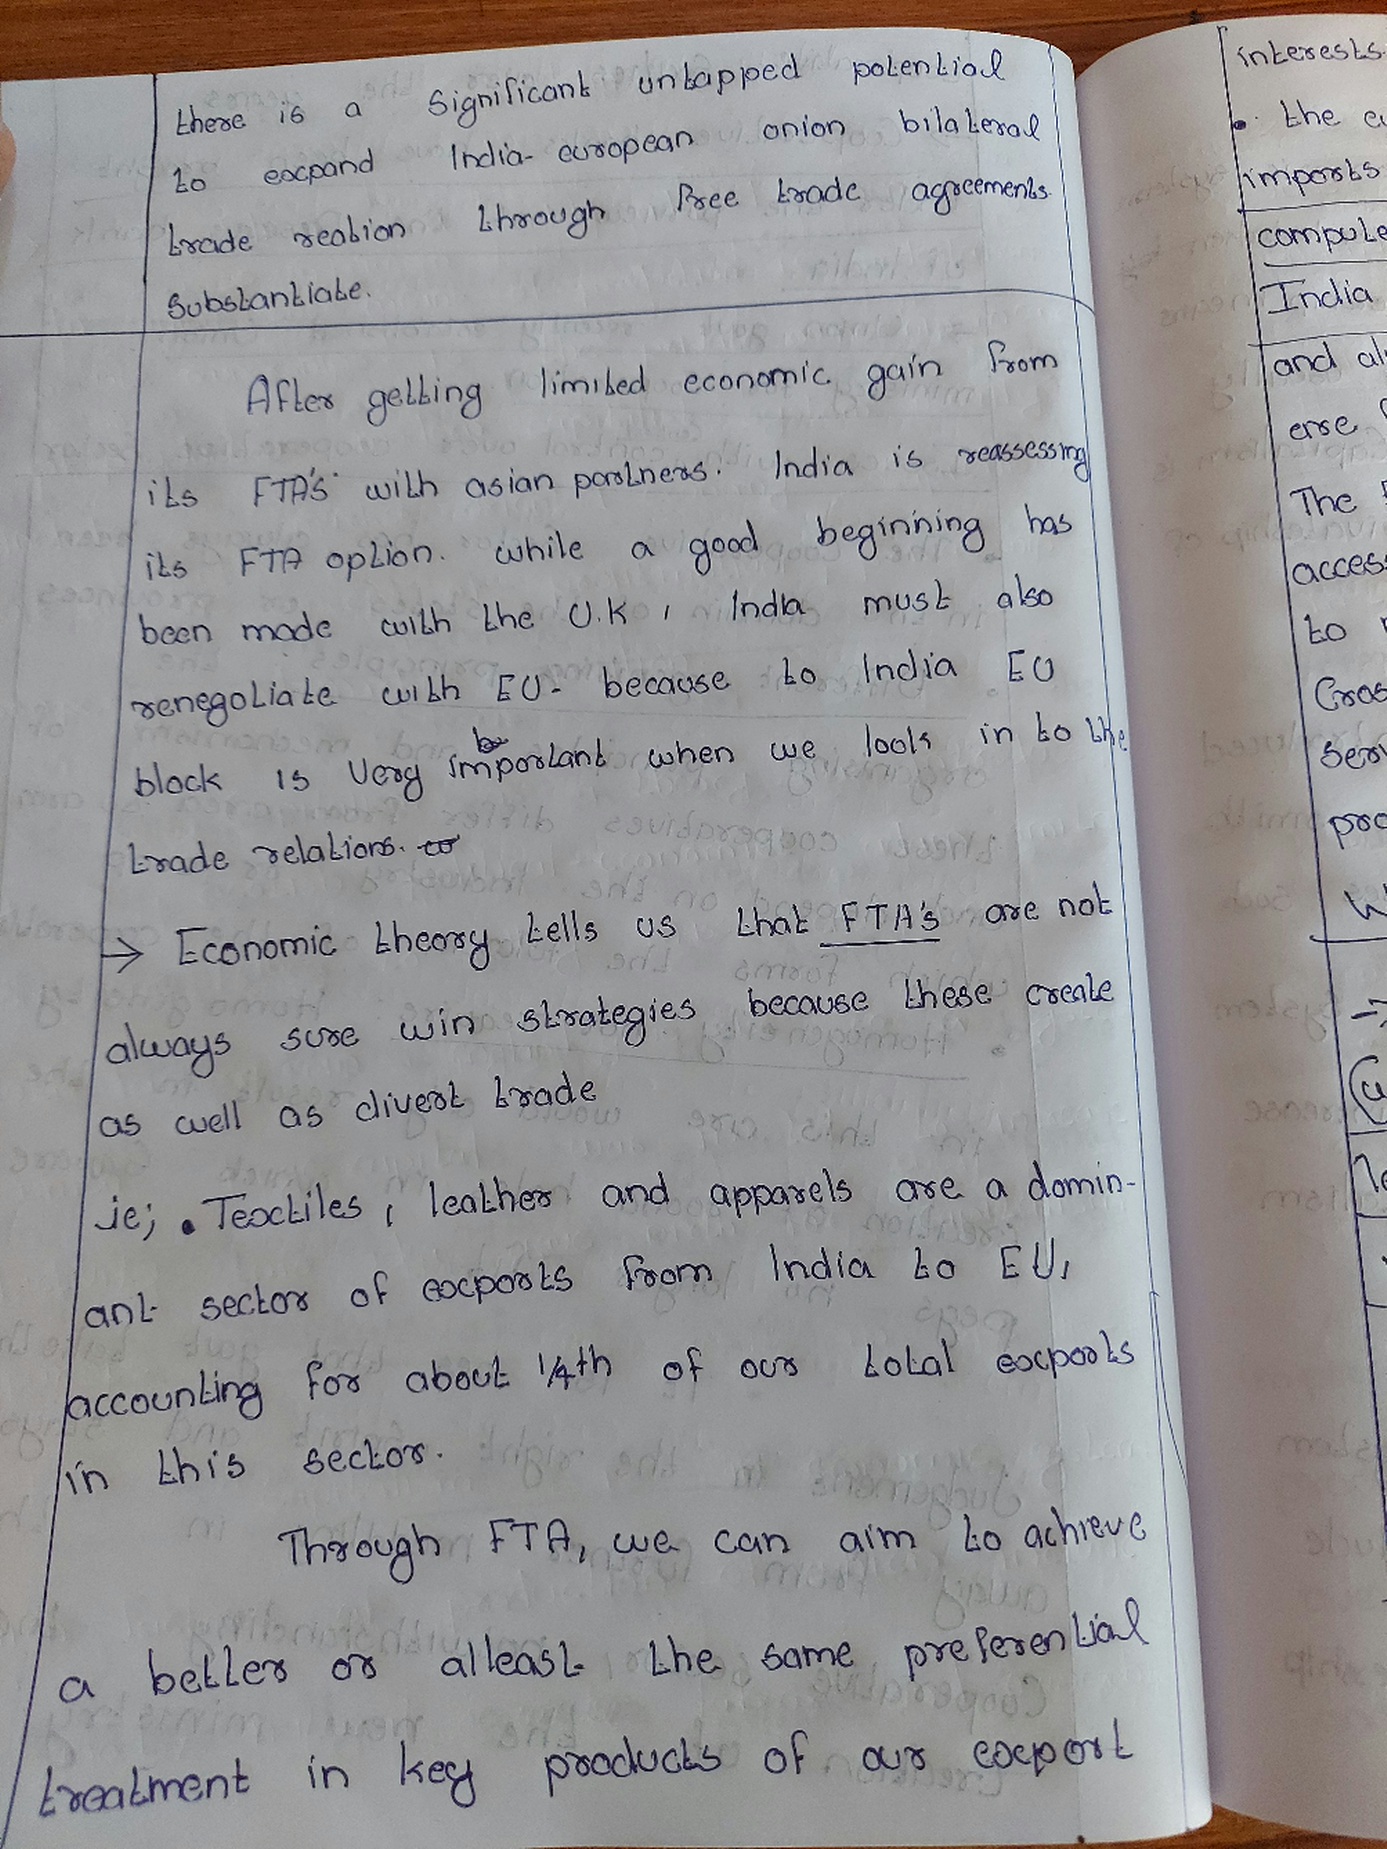 there is a significant untapped potential
to expand India-european onion bilateral
trade reation through free trade agreements.
Substantiate.
After getting limited economic gain from
its FTA's with asian partners. India is reassessing
its FTA option. while a good beginning has
been made with the U.K, India must also
renegotiate with EU- because to India EU
block is very important when we look in to the
trade relations.
→ Economic theory tells us that FTA's are not
always sure win strategies because these create
as well as divert trade
ie; • Textiles, leather and apparels are a domin-
ant sector of exports from India to EU,
accounting for about 1/4th of our total exports
in this sector.
Through FTA, we can aim to achieve
a better or atleast the same preferential
treatment in key products of our export
interests.
• the
imports
compute
India
and
The
access
to